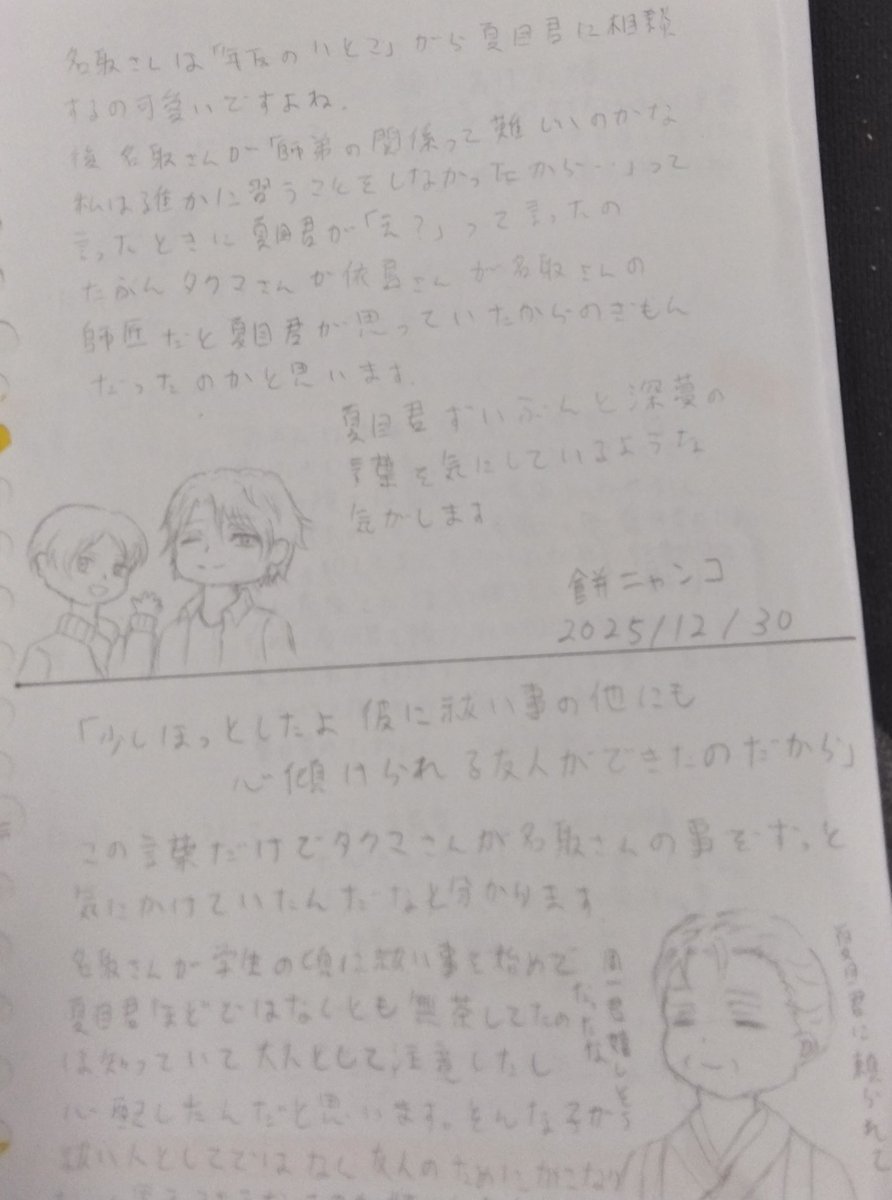 名取さんは「年反のいとこ」から夏目君に相談
するの可愛いですよね.
後 名取さんが「師弟の関係って難しいのかな
私は誰かに習うことをしなかったから…」って
言ったときに夏目君が「え?」って言ったの
たぶんタクマさんか依島さんが名取さんの
師匠だと夏目君が思っていたからのぎもん
だったのかと思います.
夏目君ずいぶんと深蔓の
言葉を気にしているような
気がします
餅ニャンコ
2025/12/30
「少しほっとしたよ 彼に祓い事の他にも
心傾けられる友人ができたのだから」
この言葉だけでタクマさんが名取さんの事をずっと
気にかけていたんだなと分かります
名取さんが学生の頃に祓い事を始めて
夏目君ほどではなくとも無茶してたの
は知っていて大人として,注意したし
心配したんだと思います。そんな子が
祓い人としてではなく友人のために
周一君嬉しそう
だったな
夏目君に頼られて